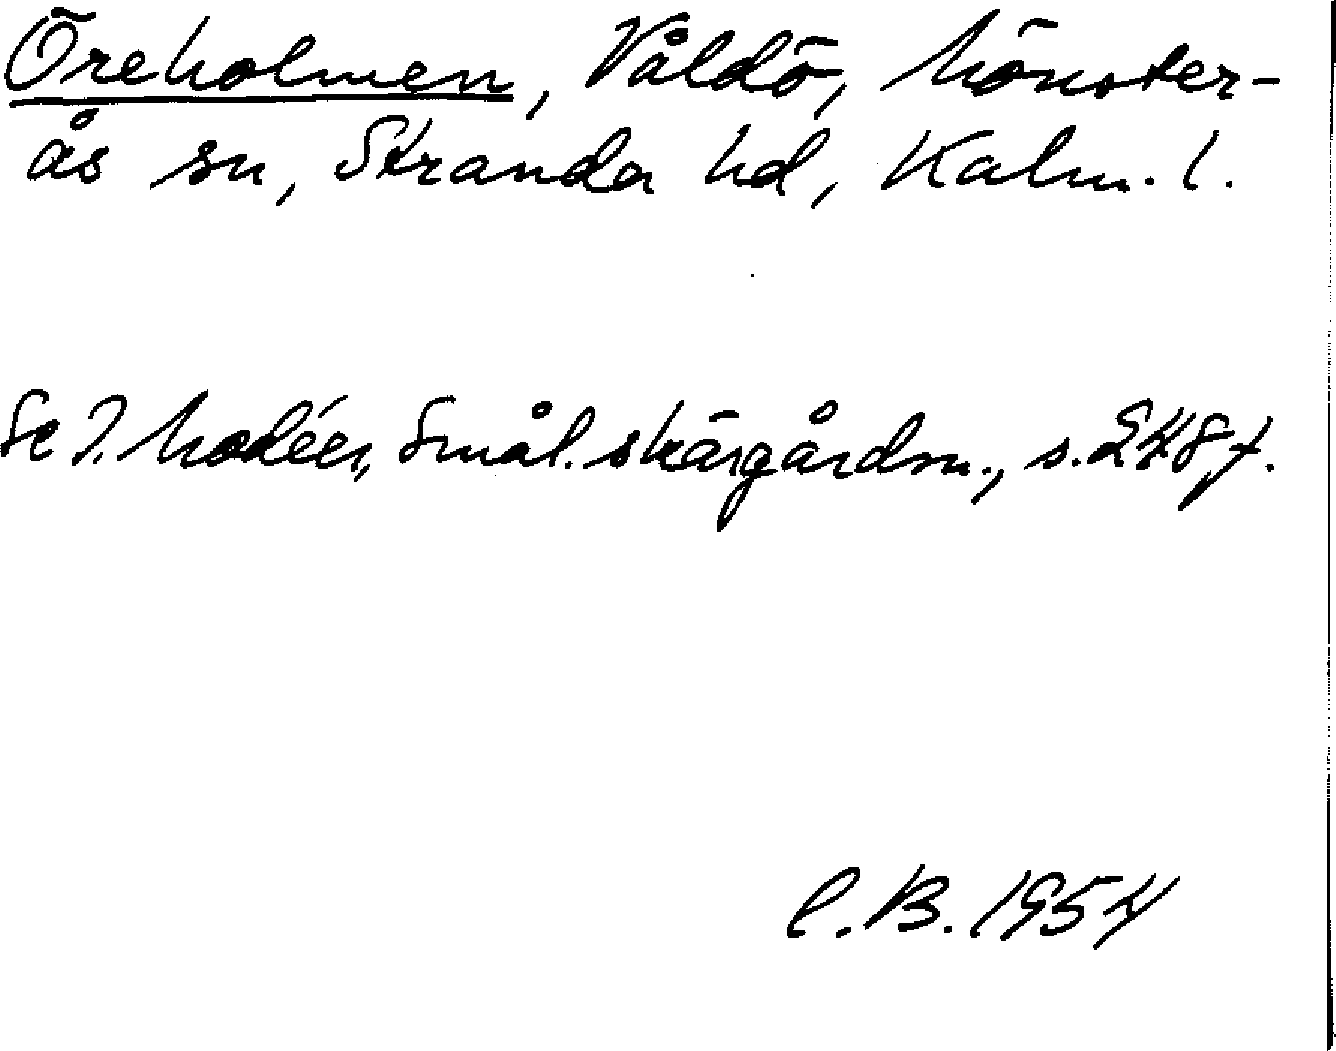 Öreholmen, Våldö, Mönster-
ås sn, Stranda hd, Kalm. l.
Se I. Modéer, Smål. skärgårdsn., s. 248 f.
C. B. 1954